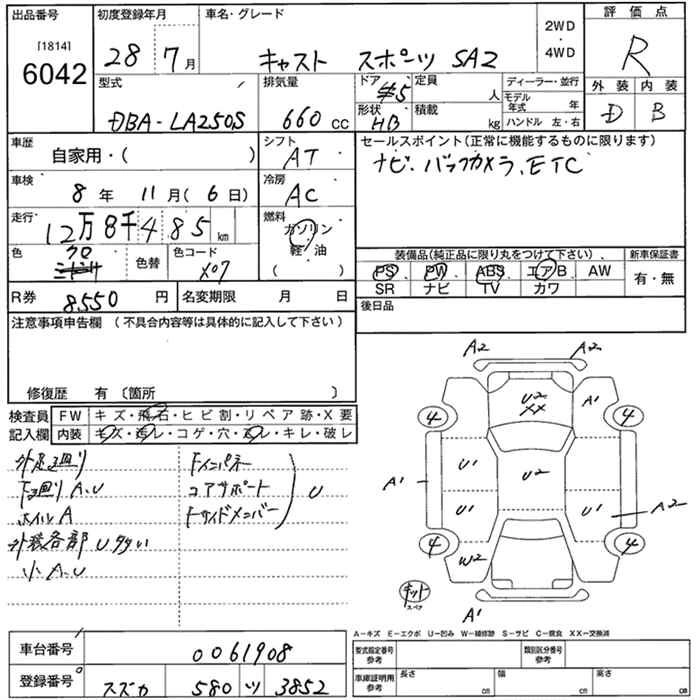 出品番号 初度登録年月 車名・グレード 2WD・4WD 評価点
[1814] 6042 28 7月 キャスト スポーツ SA2 R
型式 排気量 ドア 定員 ディーラー・並行 外装 内装
DBA-LA250S 660 cc 5 人 モデル年式 年 D B
形状 HB 積載 kg ハンドル 左・右
車歴 自家用・( ) シフト AT セールスポイント(正常に機能するものに限ります)
ナビ.バックカメラ.ETC
車検 8年 11月(6日) 冷房 AC
走行 12万8千485km 燃料 ガソリン・軽・油 ( )
色 クロ 色替 色コード X07
装備品(純正品に限り丸をつけて下さい) 新車保証書
PS PW ABS エアB AW 有・無
SR ナビ TV カワ
R券 8550円 名変期限 月 日 後日品
注意事項申告欄 (不具合内容等は具体的に記入して下さい)
修復歴 有 〔箇所 〕
検査員記入欄 FW キズ・飛石・ヒビ割・リペア跡・X要
内装 キズ・汚レ・コゲ・穴・スレ・キレ・破レ
外足廻り Fインパネー
下廻りA.U コアサポート U
ホイルA Fサイドメンバー
外装各部U多い
小A.U
A2 A2
U2 XX A1
4 4
U1 U2
A1
U1 U1 A2
4 4
W2
キット スペア
A1
A-キズ E-エクボ U-凹み W-補修跡 S-サビ C-腐食 XX-交換済
車台番号 0061908 型式指定番号 参考 類別区分番号 参考
登録番号 スズカ 580 ツ 3852 車庫証明用 参考 長さ cm 幅 cm 高さ cm